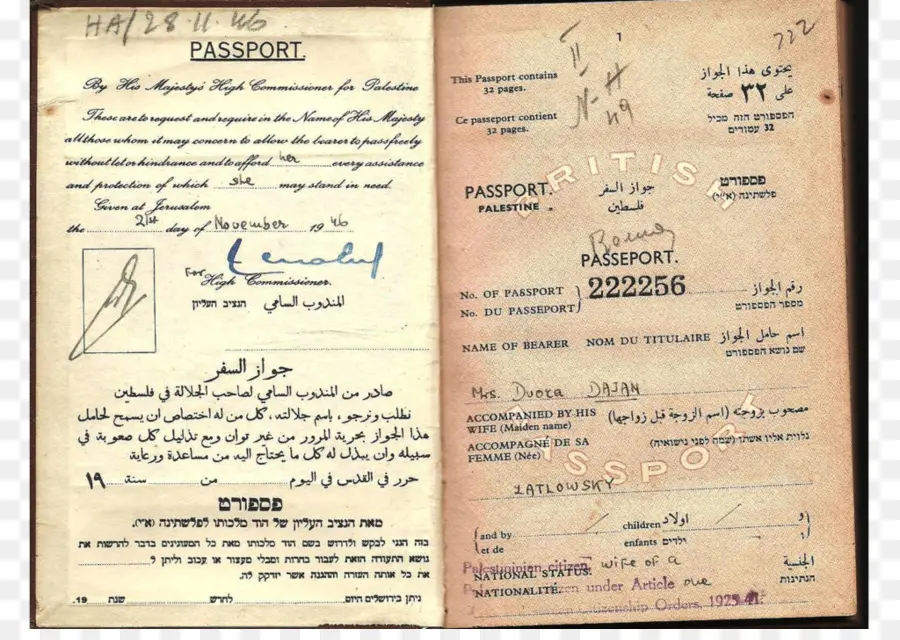 HA/28.11.46
PASSPORT.
By His Majesty's High Commissioner for Palestine
These are to request and require in the Name of His Majesty
all those whom it may concern to allow the bearer to pass freely
without let or hindrance and to afford her every assistance
and protection of which she may stand in need.
Given at Jerusalem
the 21st day of November 1946
For
High Commissioner.
المندوب السامي הנציב העליון
جواز السفر
صادر من المندوب السامي لصاحب الجلالة في فلسطين
نطلب ونرجو، باسم جلالته، كل من له اختصاص ان يسمح لحامل
هذا الجواز بحرية المرور من غير توان ومع تذليل كل صعوبة في
سبيله وان يبذل له كل ما يحتاج اليه من مساعدة ورعاية
حرر في القدس في اليوم من سنة ١٩
פספורט
מאת הנציב העליון של הוד מלכותו לפלשתינה (א״י).
בזה הנני לבקש ולדרוש בשם הוד מלכותו מאת כל המעונינים בדבר להרשות את
נושא התעודה הזאת לעבור בחרות ומבלי מעצור או עכוב וליתן ל
את כל אותה העזרה וההגנה אשר יזדקק לה.
ניתן בירושלים היום, לחדש שנת 19.
1
222
II
N-H
49
This Passport contains
32 pages.
Ce passeport contient
32 pages.
يحتوي هذا الجواز
على ٣٢ صفحة
הפספורט הזה מכיל
32 עמודים
BRITISH
PASSPORT.
PALESTINE
جواز السفر
فلسطين
פספורט
פלשתינה (א״י)
PASSEPORT.
No. OF PASSPORT
No. DU PASSEPORT
222256
رقم الجواز
מספר הפספורט
NAME OF BEARER NOM DU TITULAIRE اسم حامل الجواز
שם נושא הפספורט
Mrs. Dvora DAJAN
ACCOMPANIED BY HIS
WIFE (Maiden name)
مصحوب بزوجته (اسم الزوجة قبل زواجها)
ACCOMPAGNÉ DE SA
FEMME (Née)
נלוית אליו אשתו (שמה לפני נישואיה)
PASSPORT
ZATLOWSKY
and by
et de
children اولاد
enfants ילדים
و
ו
Palestinian citizen
NATIONAL STATUS: wife of a الجنسية
under Article one
NATIONALITÉ. הנתינות
Citizenship Orders, 1925-41.